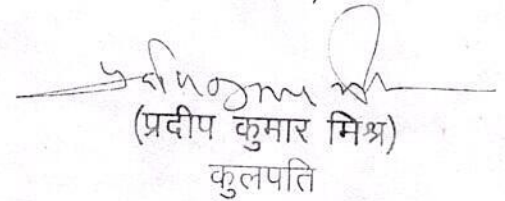 (प्रदीप कुमार मिश्र)
कुलपति